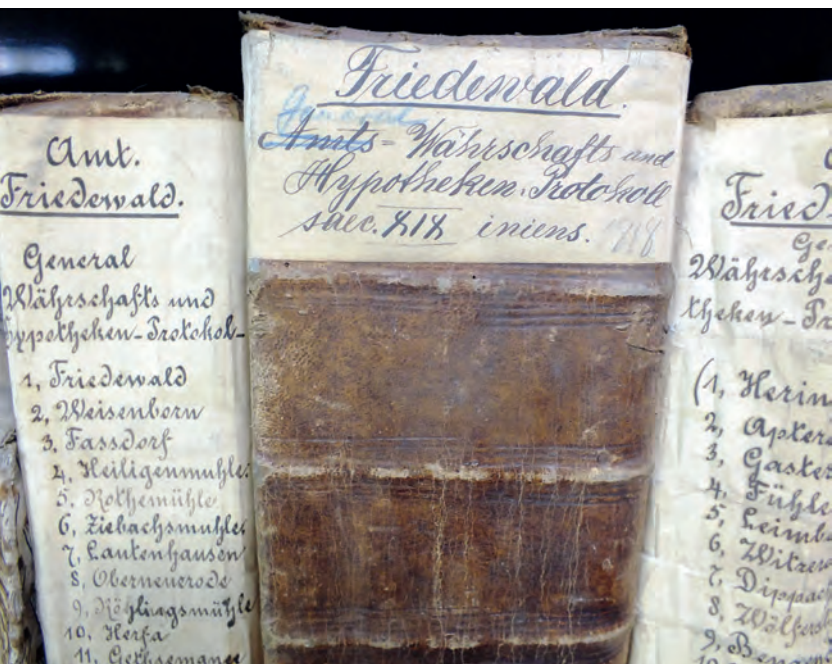 Amt.
Friedewald.
General
Währschafts und
Hypotheken-Protokol-
1, Friedewald
2, Weisenborn
3. Fassdorf
4. Heiligenmuhle
5. Rothemühle
6, Ziebachsmuhle
7, Lautenhausen
8, Oberneurode
10. Herfa
11. Gethsemane
Friedewald.
General
Amts-Währschafts und
Hypotheken-Protokoll
saec. XIX iniens. 1918
Fried
Ge
Währscha
theken-Pro
(1, Herin
2, Apters
3, Gaster
4, Fühle
5, Leimb
6, Witzer
7, Dippac
8, Wölfers
9, Be